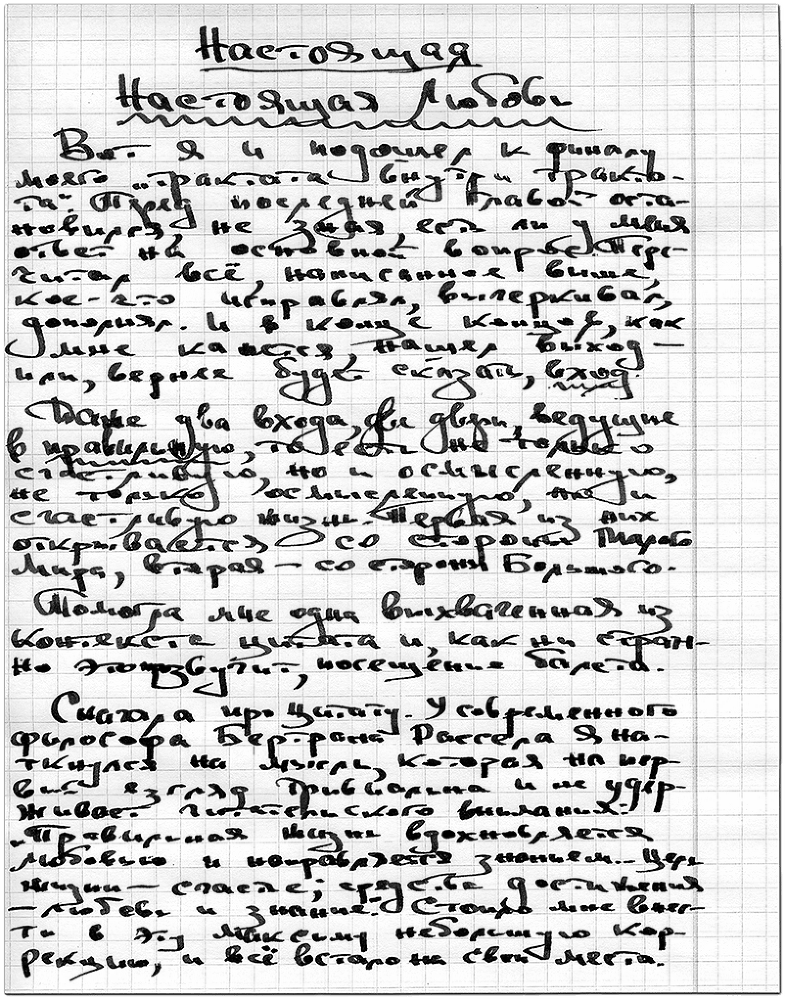 Настоящая
Настоящая Любовь
Вот я и подошел к финалу
моего „трактата внутри тракта-
та“. Перед последней главой оста-
новился, не зная, есть ли у меня
ответ на основной вопрос. Пере-
читал всё, написанное выше,
кое-что исправлял, вычеркивал,
дополнял. И в конце концов, как
мне кажется, нашел выход —
или, вернее будет сказать, вход.
Даже два входа, две двери, ведущие
в правильную, то есть не только
счастливую, но и осмысленную,
не только осмысленную, но и
счастливую жизнь. Первая из них
открывается со стороны Малого
Мира, вторая — со стороны Большого.
Помогла мне одна выхваченная из
контекста цитата и, как ни стран-
но это прозвучит, посещение балета.
Сначала про цитату. У современного
философа Бертрана Рассела я на-
ткнулся на мысль, которая на пер-
вый взгляд тривиальна и не удер-
живает читательского внимания:
„Правильная жизнь вдохновляется
любовью и направляется знанием... Цель
жизни — счастье; средства достижения
— любовь и знание.“ Стоило мне внес-
ти в эту максиму небольшую кор-
рекцию, и всё встало на свои места.